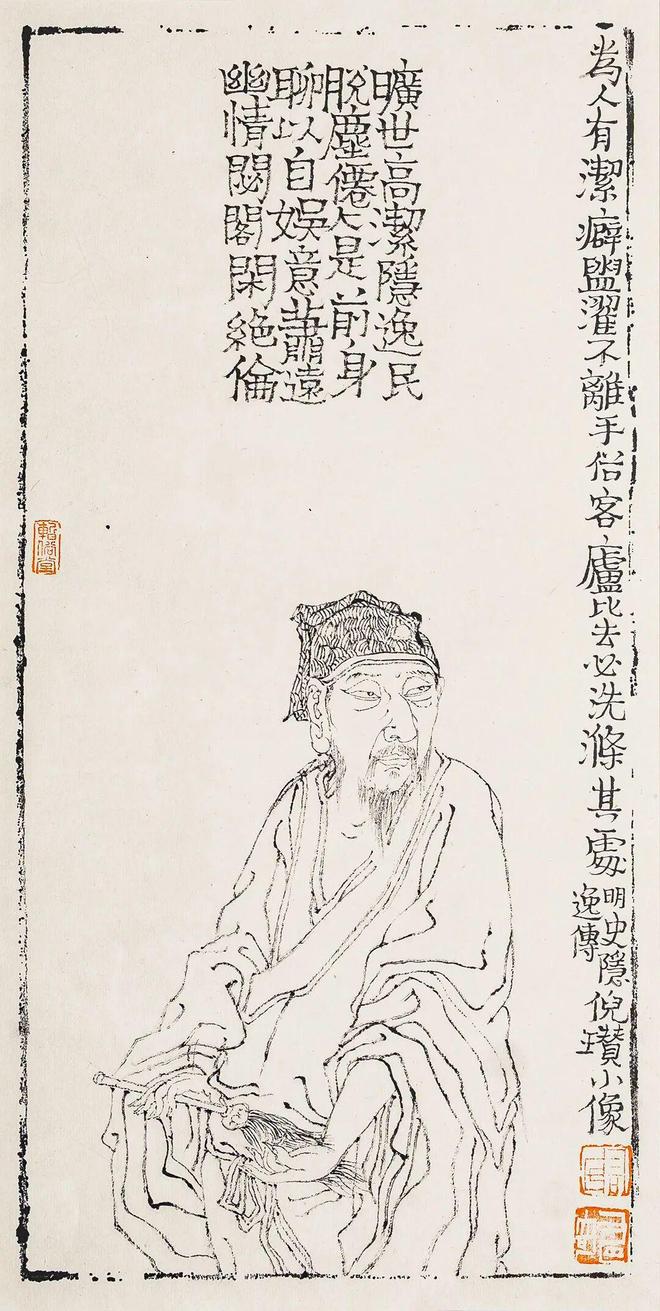 為人有潔癖盥濯不離手俗客廬比去必洗滌其處
明史隱
逸傳
倪瓚小像
曠世高潔隱逸民
脫塵僊人是前身
聊以自娛意蕭遠
幽情閟閣閑絕倫